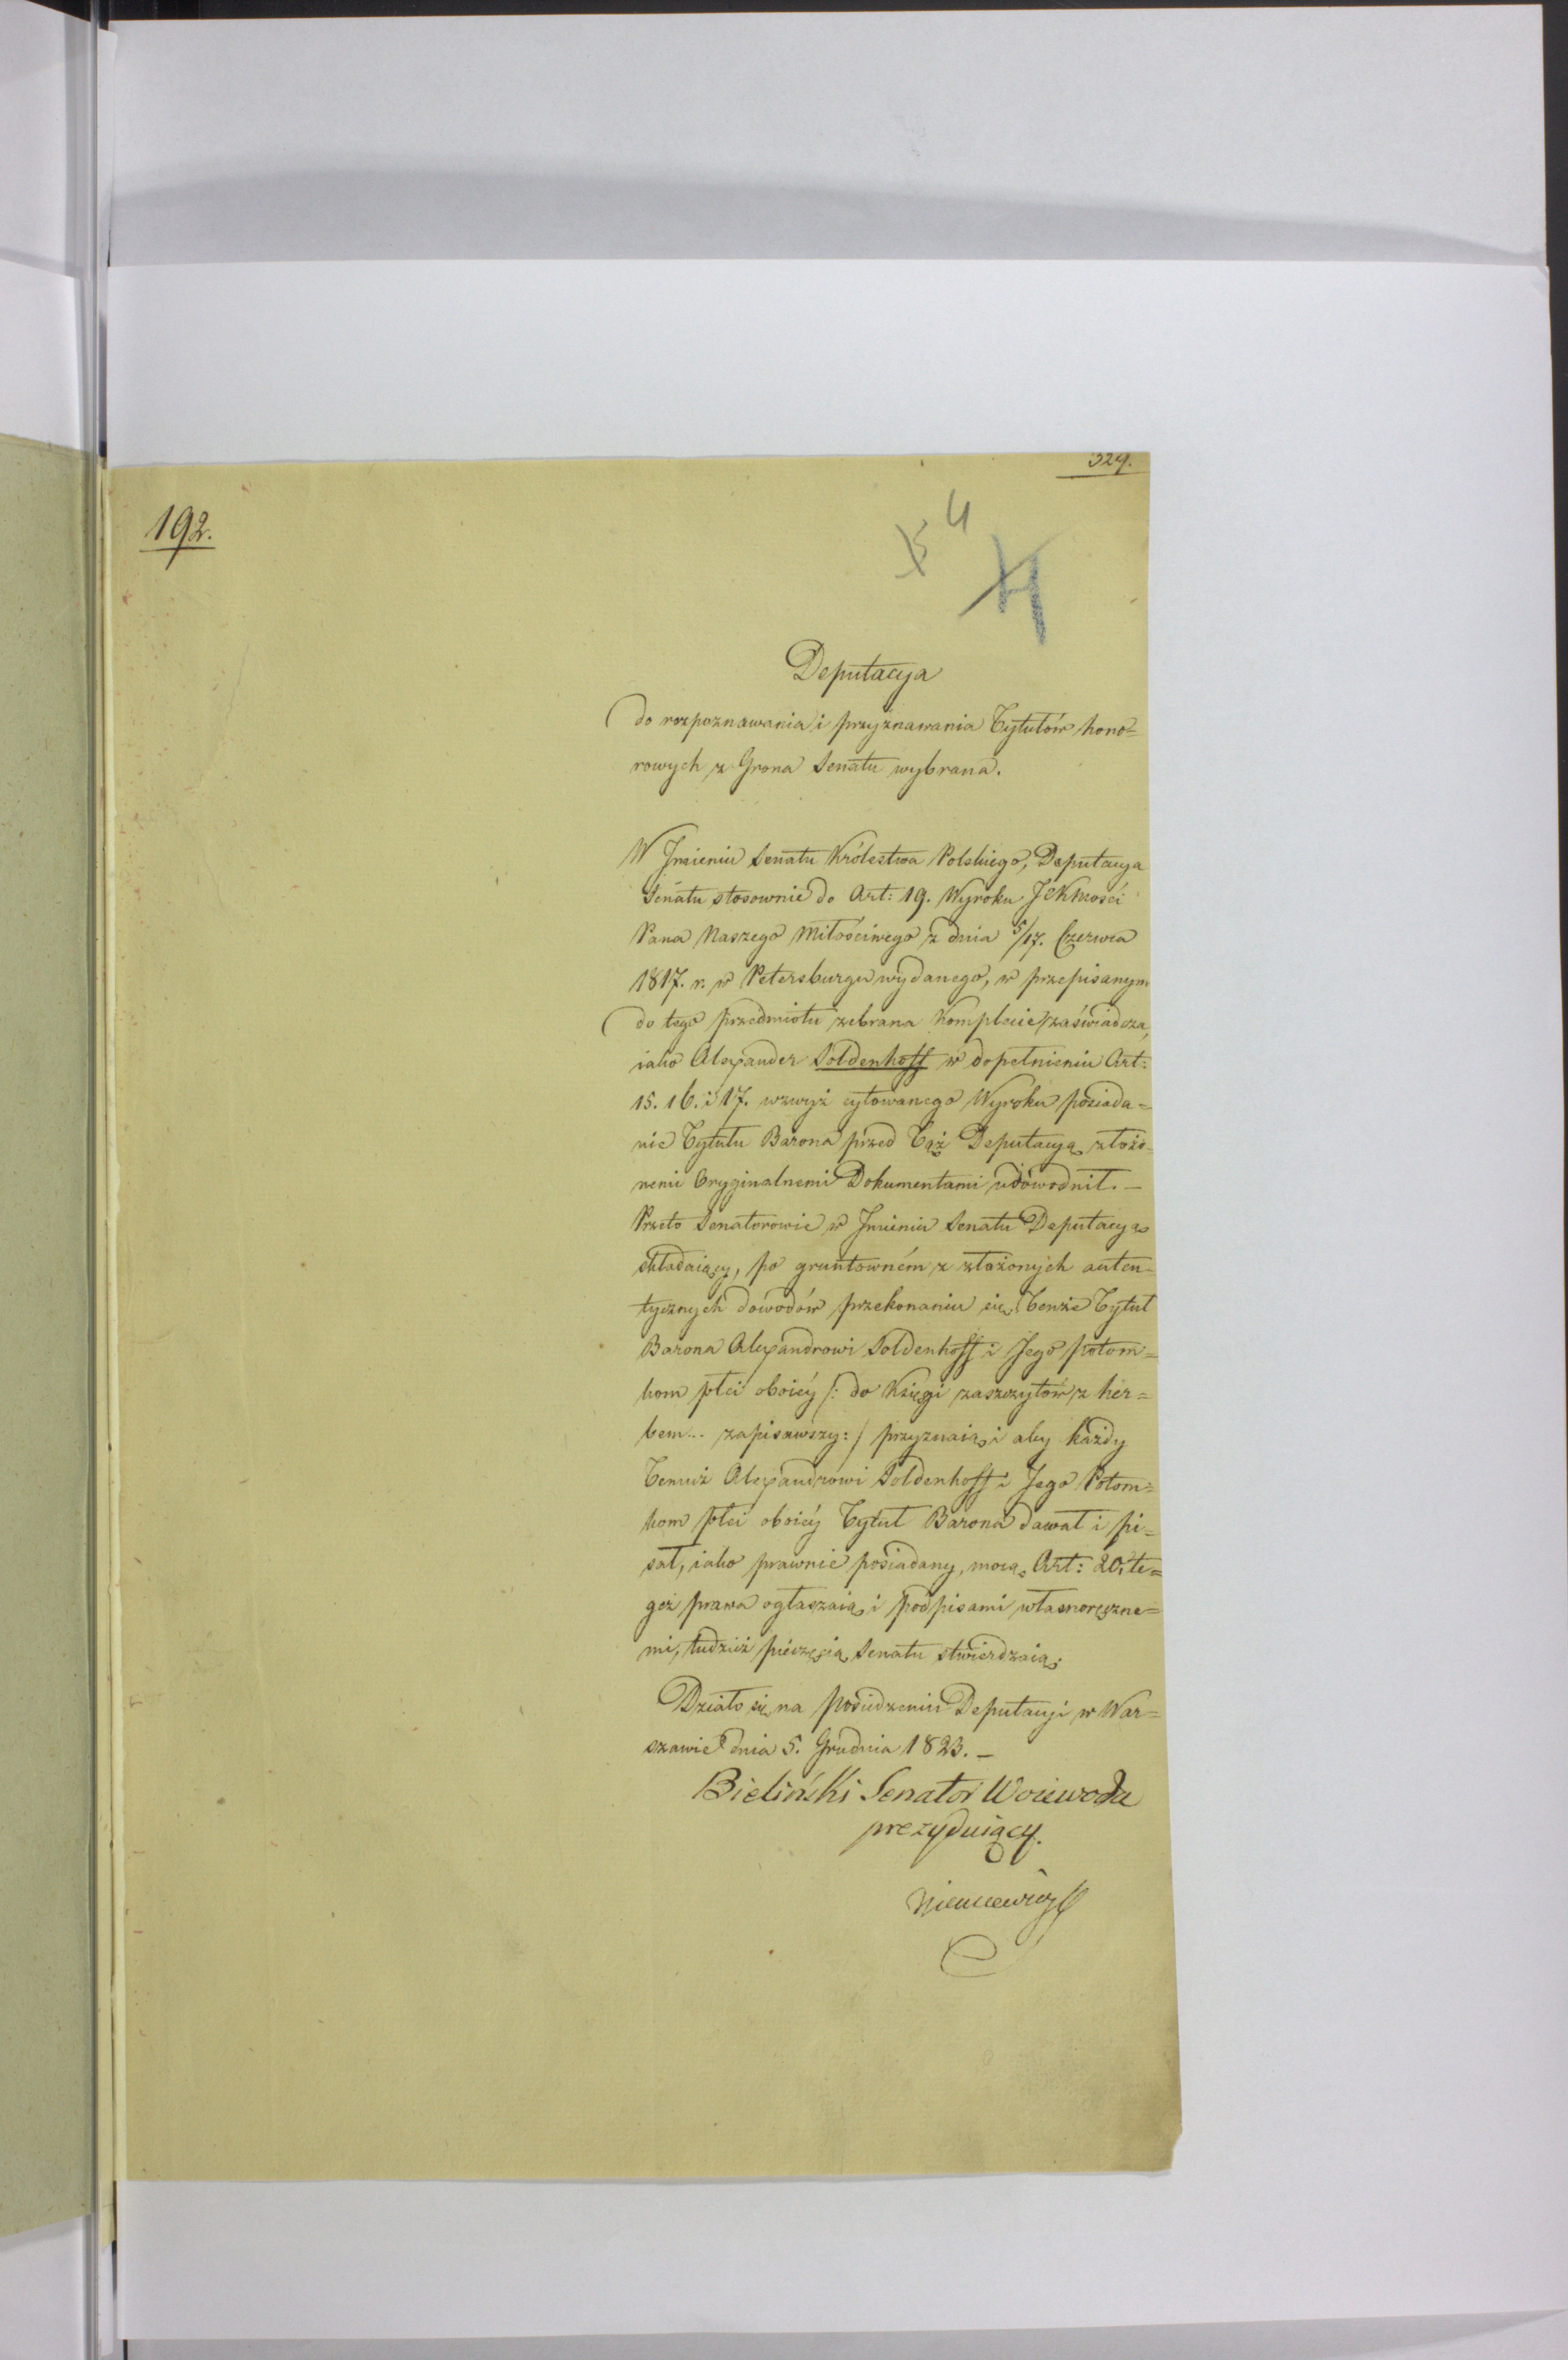 324.
192.
5 4
4
Deputacya
do rozpoznawania i przyznawania Tytułów hono=
rowych z Grona Senatu wybrana.
W Jmieniu Senatu Królestwa Polskiego, Deputacya
Senatu stosownie do Art: 19. Wyroku JEKmości
Pana Naszego Miłościwego z dnia 5/17. Czerwca
1817. r. w Petersburgu wydanego, w przepisanym
do tego przedmiotu zebrana Komplecie, zaświadcza,
iako Alexander Soldenhoff w dopełnieniu Art:
15. 16. i 17. wzwyż cytowanego Wyroku posiada=
nie Tytułu Barona przed Tąż Deputacyą złożo=
nemi Oryginalnemi Dokumentami udowodnił. —
Przeto Senatorowie w Jmieniu Senatu Deputacyą
składaiący, po gruntowném z złożonych auten=
tycznych dowodów przekonaniu się, Tenże Tytuł
Barona Alexandrowi Soldenhoff i Jego potom=
kom płci oboiéy /: do Księgi zaszczytów z her=
bem... zapisawszy: / przyznaią, i aby każdy
Temuż Alexandrowi Soldenhoff i Jego Potom=
kom płci oboiéy Tytuł Barona dawał i pi=
sał, iako prawnie posiadany, mocą Art: 20. te=
goż prawa ogłaszaią, i podpisami własnoręczne=
mi, tudzież pieczęcią Senatu stwierdzaią.
Działo się na posiedzeniu Deputacyi w War=
szawie dnia 5. Grudnia 1823. —
Bieliński Senator Woiewoda
prezyduiący.
Niemcewicz